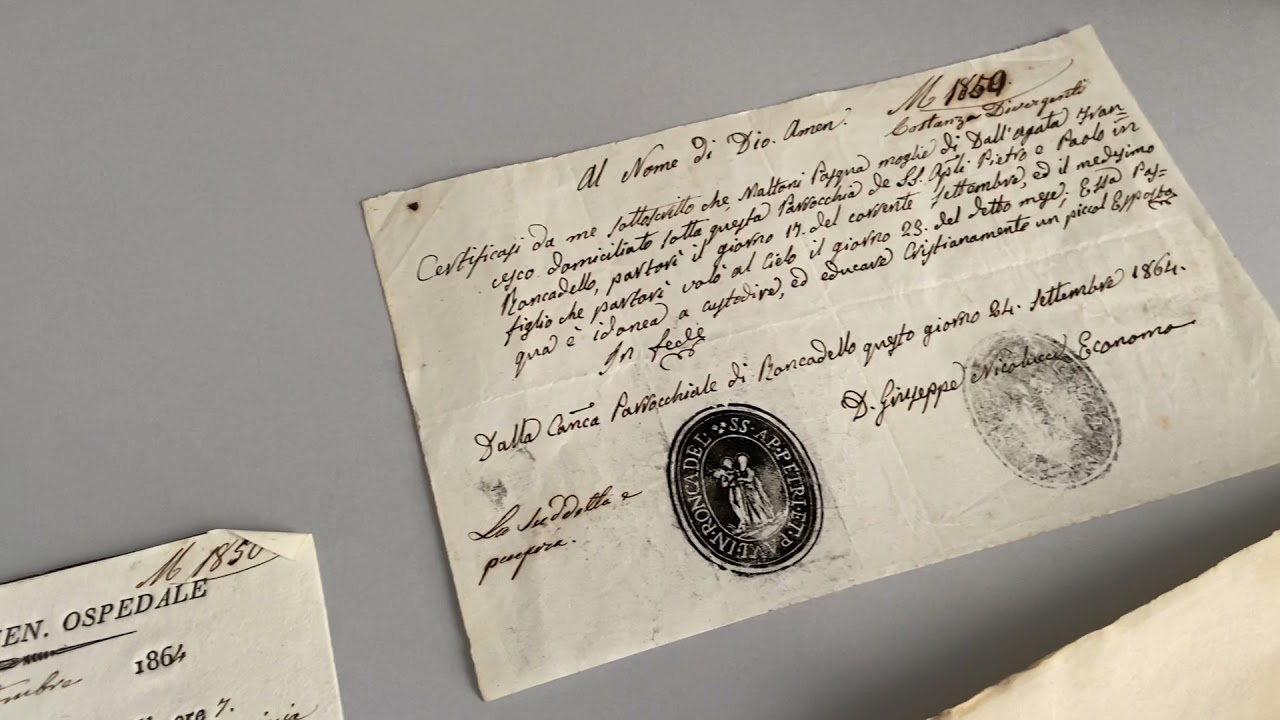 M 1859.
Costanza Divergenti
Al Nome di Dio. Amen.
Certificasi da me sottoscritto che, Maltoni Pasqua moglie di Dall'Agata Fran=
cesco domiciliato sotto questa Parrocchia de SS. Apli Pietro e Paolo in
Roncadello, partorì il giorno 17. del corrente Settembre, ed il medesimo
figlio che partorì volò al Cielo il giorno 23. del detto mese; Essa Pas=
qua è idonea a custodire, ed educare Cristianamente un piccol Esposto
In fede
Dalla Canca Parrocchiale di Roncadello questo giorno 24. Settembre 1864.
D. Giuseppe Nicolucci Economo
SS·AP·PETRI·ET·PAVL·IN·RONCADEL
La suddetta e
povera.
M 1850
EN. OSPEDALE
1864
embre
ore 7.